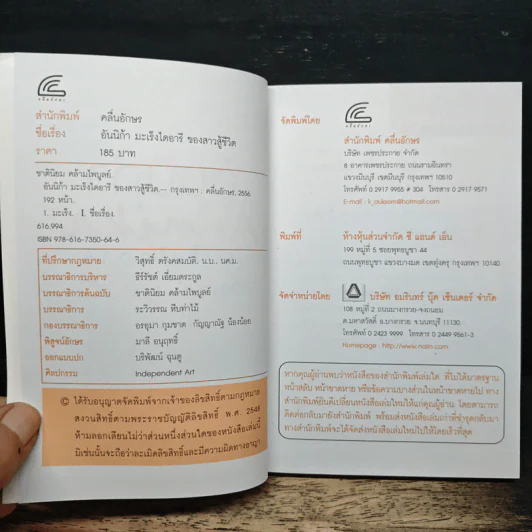 คลื่นอักษร
สำนักพิมพ์ คลื่นอักษร
ชื่อเรื่อง อันนิก้า มะเร็งไดอารี ของสาวสู้ชีวิต
ราคา 185 บาท
ชาตินิยม คล้ามไพบูลย์.
อันนิก้า มะเร็งไดอารี ของสาวสู้ชีวิต.-- กรุงเทพฯ : คลื่นอักษร, 2556.
192 หน้า.
1. มะเร็ง. I. ชื่อเรื่อง.
616.994
ISBN 978-616-7350-64-6
ที่ปรึกษากฎหมาย วิสุทธิ์ ตรังคสมบัติ. น.บ., นศ.ม.
บรรณาธิการบริหาร ธีร์รัชต์ เอี่ยมตระกูล
บรรณาธิการต้นฉบับ ชาตินิยม คล้ามไพบูลย์
บรรณาธิการ ระวิวรรณ ทีบท่าไม้
กองบรรณาธิการ อรอุมา กุมชาด กัญญาณัฐ น้องน้อย
พิสูจน์อักษร มาลี อนุฤทธิ์
ออกแบบปก บริพัฒน์ ฉุนตู
ศิลปกรรม Independent Art
© ได้รับอนุญาตจัดพิมพ์จากเจ้าของลิขสิทธิ์ตามกฎหมาย
สงวนสิทธิ์ตามพระราชบัญญัติลิขสิทธิ์ พ.ศ. 2548
ห้ามลอกเลียนไม่ว่าส่วนหนึ่งส่วนใดของหนังสือเล่มนี้
มิเช่นนั้นจะถือว่าละเมิดลิขสิทธิ์และมีความผิดทางอาญา
คลื่นอักษร
จัดพิมพ์โดย สำนักพิมพ์ คลื่นอักษร
บริษัท เพชรประกาย จำกัด
8 อาคารเพชรประกาย ถนนรามอินทรา
แขวงมีนบุรี เขตมีนบุรี กรุงเทพฯ 10510
โทรศัพท์ 0 2917 9955 # 304 โทรสาร 0 2917 9571
E-mail :
พิมพ์ที่ ห้างหุ้นส่วนจำกัด ซี แอนด์ เอ็น
199 หมู่ที่ 5 ซอยพุทธบูชา 44
ถนนพุทธบูชา แขวงบางมด เขตทุ่งครุ กรุงเทพฯ 10140
จัดจำหน่ายโดย บริษัท อมรินทร์ บุ๊ค เซ็นเตอร์ จำกัด
108 หมู่ที่ 2 ถนนบางกรวย-จงถนอม
ต.มหาสวัสดิ์ อ.บางกรวย จ.นนทบุรี 11130
โทรศัพท์ 0 2423 9999 โทรสาร 0 2449 9561-3
Homepage : http://www.naiin.com
หากคุณผู้อ่านพบว่าหนังสือของสำนักพิมพ์เล่มใด ที่ไม่ได้มาตรฐาน
หน้าสลับ หน้าขาดหาย หรือข้อความบางส่วนในหน้าขาดหายไป ทาง
สำนักพิมพ์ยินดีเปลี่ยนหนังสือเล่มใหม่ให้แก่คุณผู้อ่าน โดยสามารถ
ติดต่อกลับมายังสำนักพิมพ์ พร้อมส่งหนังสือเล่มเก่าที่ชำรุดกลับมา
ทางสำนักพิมพ์จะได้จัดส่งหนังสือเล่มใหม่ไปให้โดยเร็วที่สุด